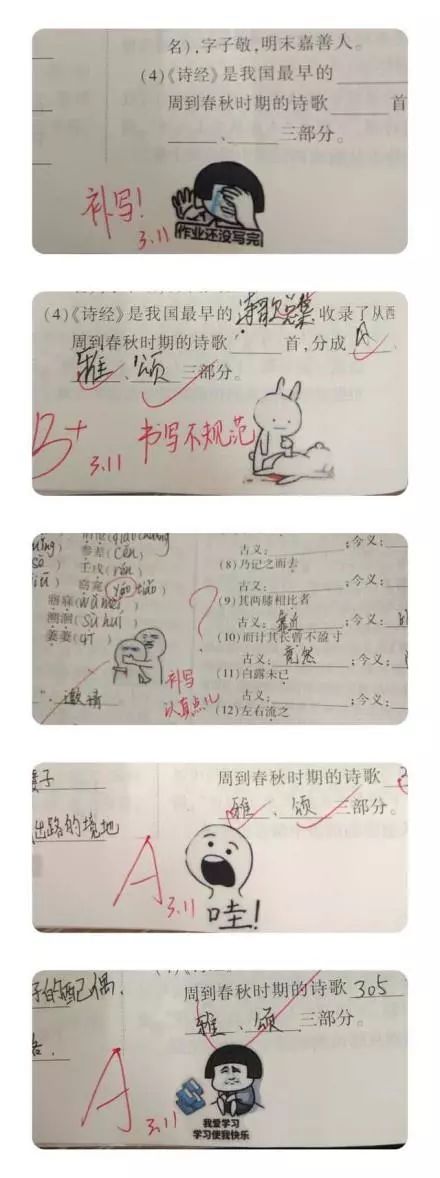 名),字子敬,明末嘉善人。
(4)《诗经》是我国最早的
周到春秋时期的诗歌 首
、 三部分。
补写!
3.11
作业还没写完
(4)《诗经》是我国最早的 诗歌总集 收录了从西
周到春秋时期的诗歌 首,分成 风、
雅、颂 三部分。
B+
3.11
书写不规范
参差(cēn)
窈窕(yǎo tiǎo)
溯洄(sù huí)
邀请
补写
认真点儿
古义: ;今义:
(8)乃记之而去
古义: ;今义:
(9)其两膝相比者
古义:靠近 ;今义:
(10)而计其长曾不盈寸
古义:竟然 ;今义:
(11)白露未已
古义: ;今义:
(12)左右流之
出路的境地
周到春秋时期的诗歌
雅、颂 三部分。
A
3.11
哇!
子的配偶,
周到春秋时期的诗歌 305
雅、颂 三部分。
A
3.11
我爱学习
学习使我快乐